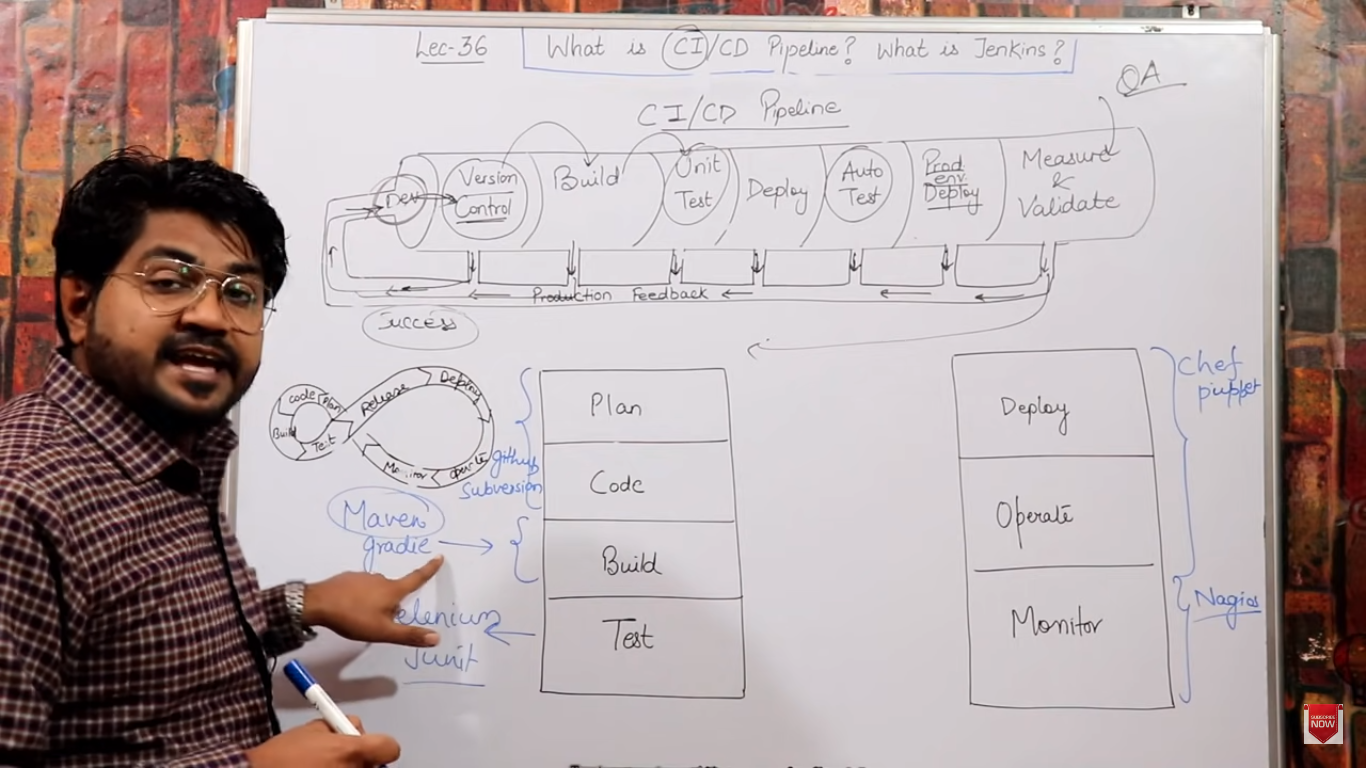 Lec-36 What is CI/CD Pipeline? What is Jenkins?
QA
CI/CD Pipeline
Dev
Version
Control
Build
Unit
Test
Deploy
Auto
Test
Prod
env.
Deploy
Measure
&
Validate
Production Feedback
success
Code
Plan
Build
Test
Release
Deploy
Operate
Monitor
github
subversion
Maven
gradle
elenium
Junit
Plan
Code
Build
Test
Deploy
Operate
Monitor
Chef
puppet
Nagios
SUBSCRIBE
NOW